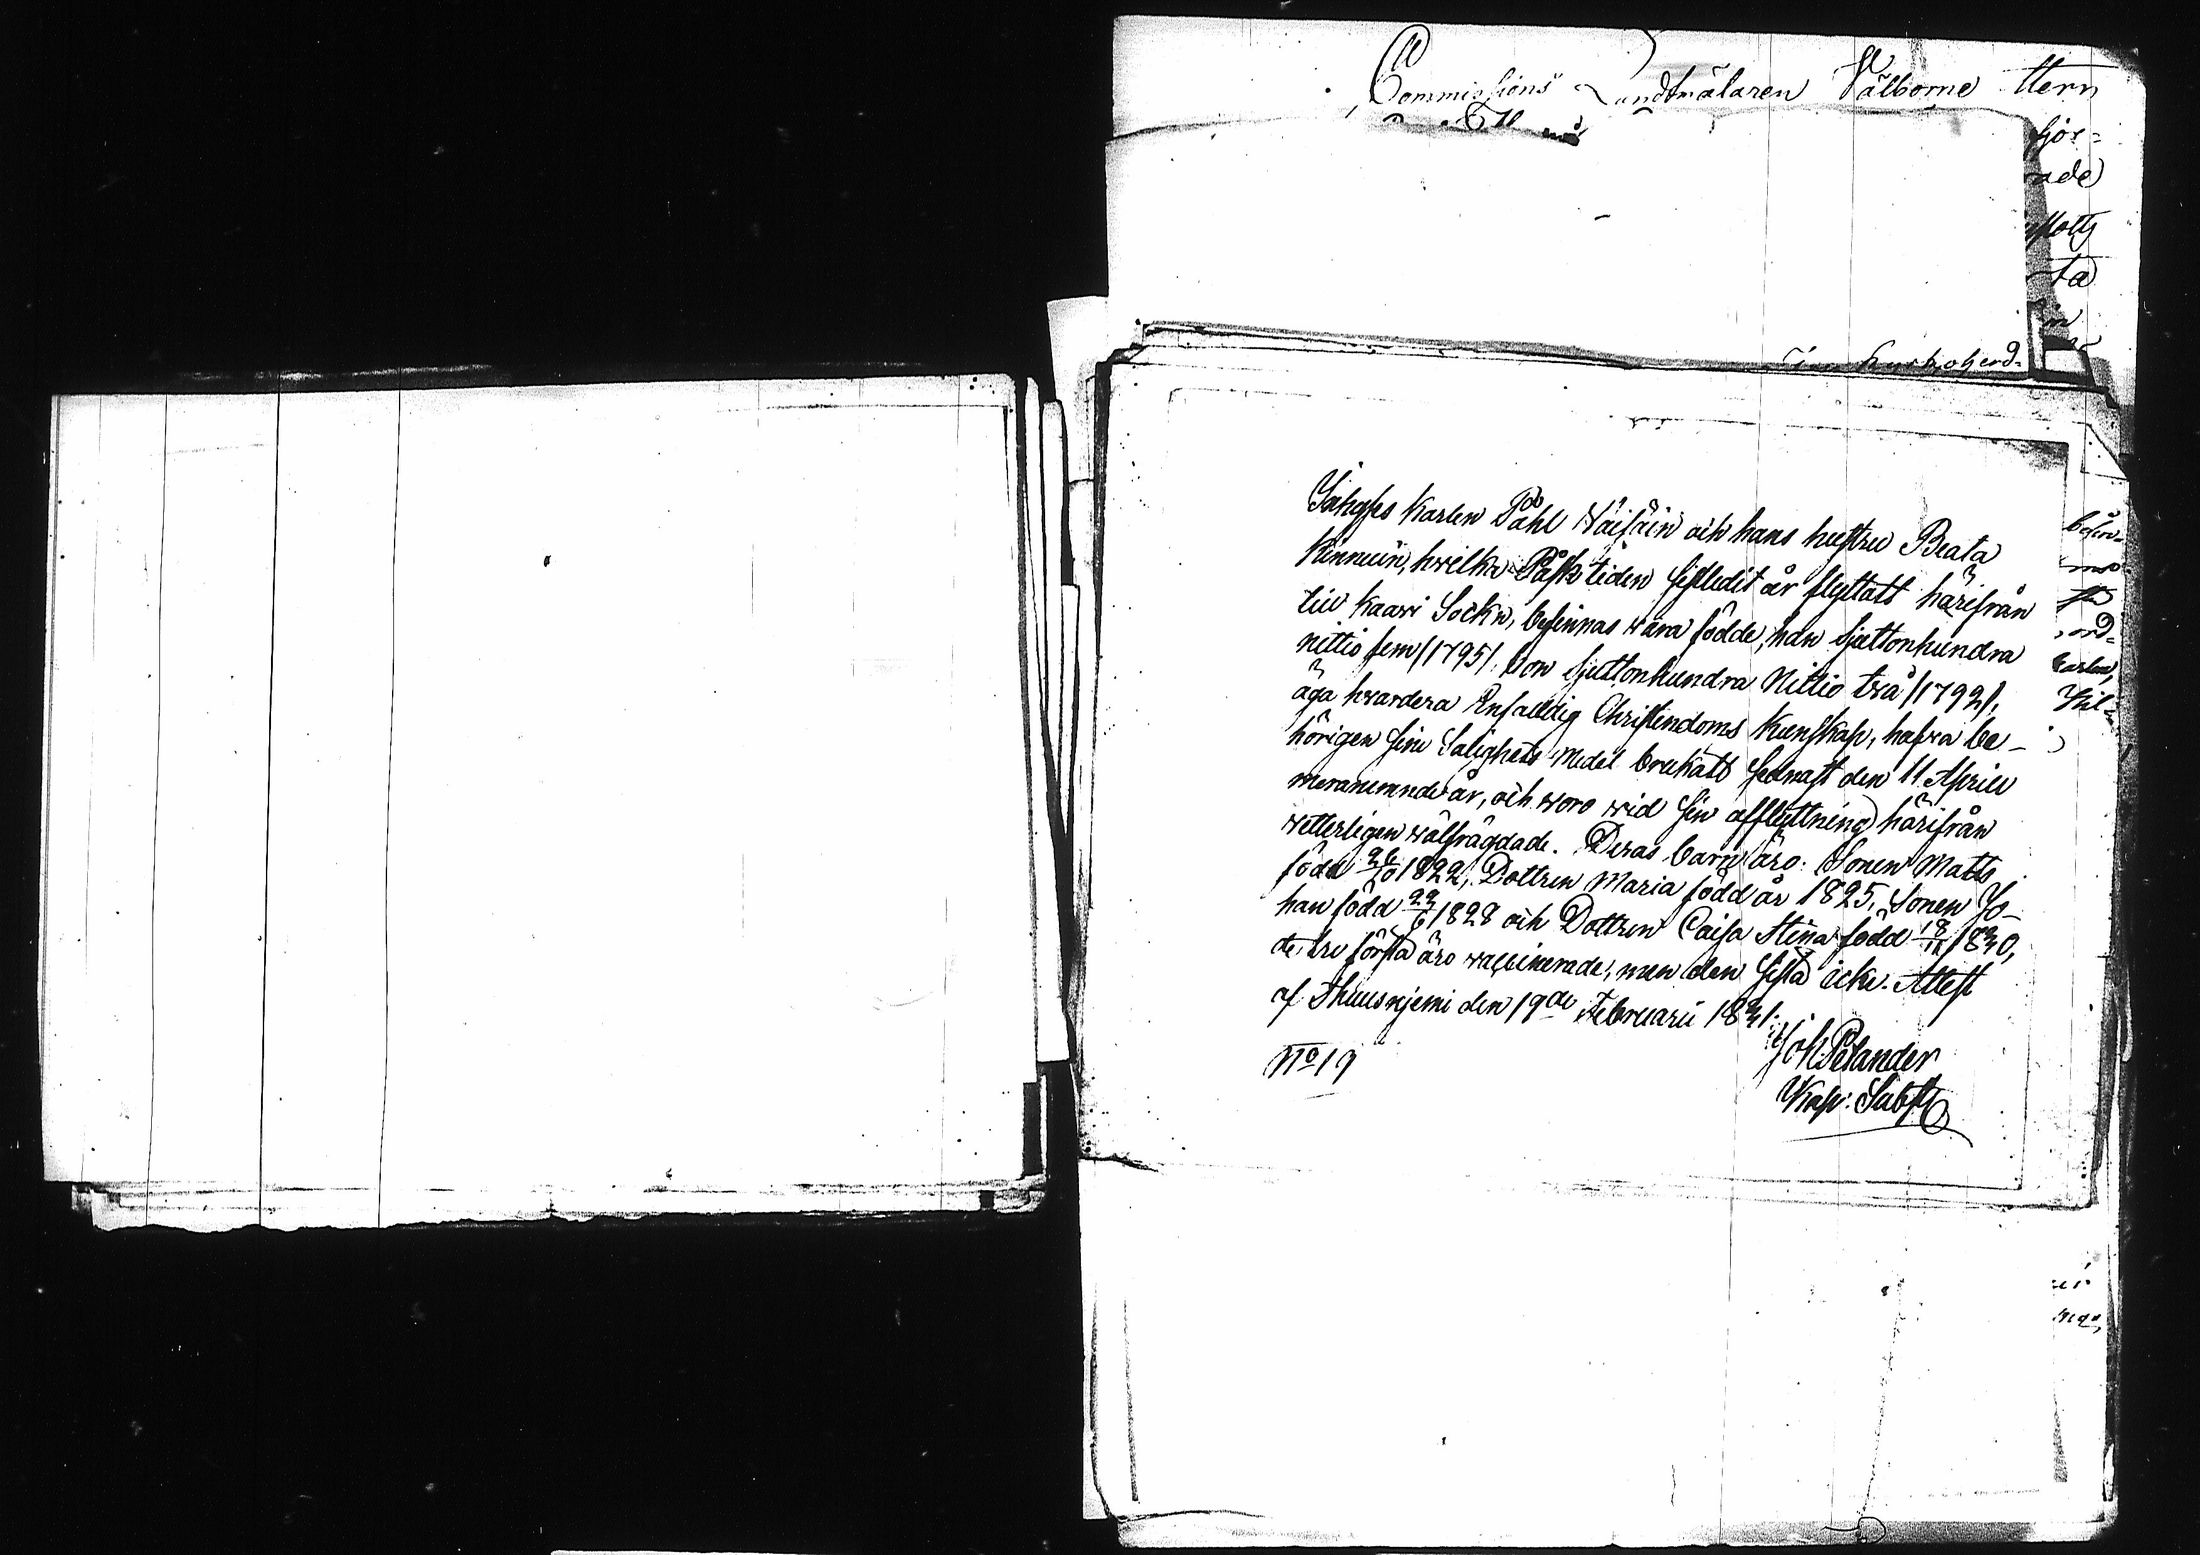 Commissions Landtmätaren Välborne Herr
fjor=
ade
ta
Kyrkoherd-
Inhyses Karlen Påhl Wäisäin och hans hustru Beata
Kinnuin, hwilka Påsk tiden sistledit år flyttatt härifrån
till Kaavi Sockn, befinnas wara födde, han Sjuttonhundra
nittio fem /1795/. hon Sjuttonhundra Nittio twå /1792/,
äga hwardera Enfaldig Christendoms Kunskap, hafwa be-
hörigen sine Salighets Medel brukatt sednast den 11 Aprill
meranemnde år, och woro wid sin afflyttning härifrån
wetterligen wälfrägdade. Deras barn äro: Sonen Matts
född 26/10 1822, Dottren Maria född år 1825, Sonen Jo-
han född 22/6 1828 och Dottren Caisa Stina född 18/11 1830,
de tre första äro vaccinerade, men den sista icke. Attest
af Thuusnjemi den 19de Februarii 1831.
Joh Pelander
Kap. Subst
No 19